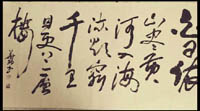 白日依
山尽黄
河入海
流欲窮
千里
目更上一層
楼